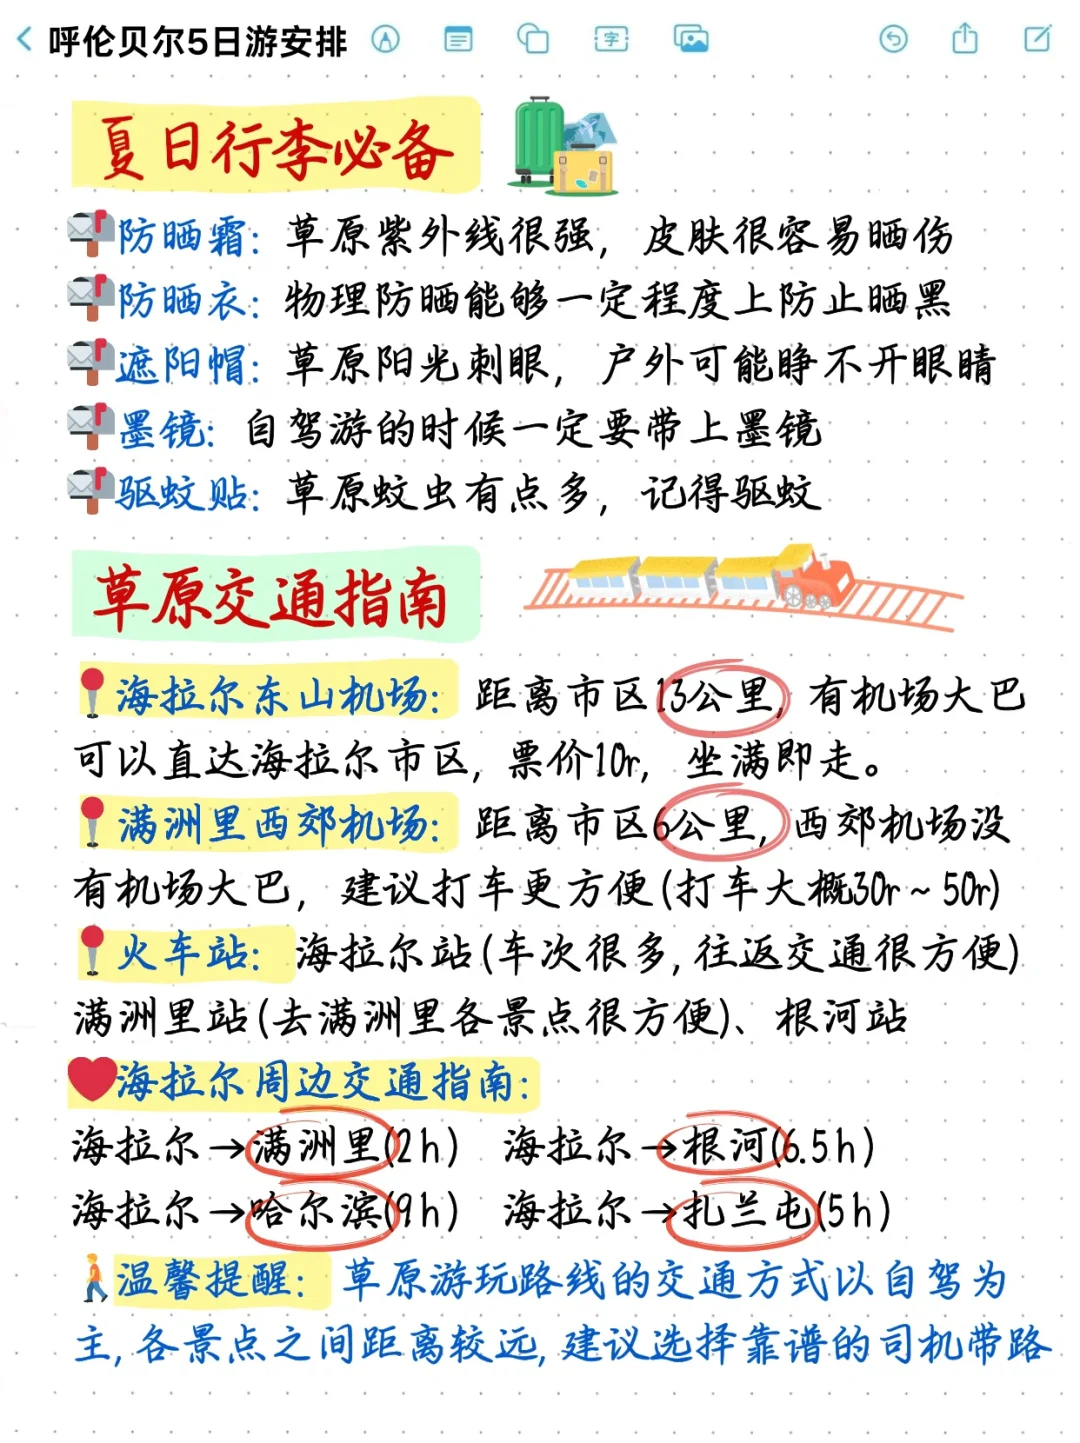 呼伦贝尔5日游安排
字
夏日行李必备
防晒霜：草原紫外线很强，皮肤很容易晒伤
防晒衣：物理防晒能够一定程度上防止晒黑
遮阳帽：草原阳光刺眼，户外可能睁不开眼睛
墨镜：自驾游的时候一定要带上墨镜
驱蚊贴：草原蚊虫有点多，记得驱蚊
草原交通指南
海拉尔东山机场：距离市区13公里，有机场大巴
可以直达海拉尔市区，票价10r，坐满即走。
满洲里西郊机场：距离市区6公里，西郊机场没
有机场大巴，建议打车更方便(打车大概30r~50r)
火车站：海拉尔站(车次很多,往返交通很方便)
满洲里站(去满洲里各景点很方便)、根河站
海拉尔周边交通指南：
海拉尔→满洲里(2h) 海拉尔→根河(6.5h)
海拉尔→哈尔滨(9h) 海拉尔→扎兰屯(5h)
温馨提醒：草原游玩路线的交通方式以自驾为
主,各景点之间距离较远,建议选择靠谱的司机带路